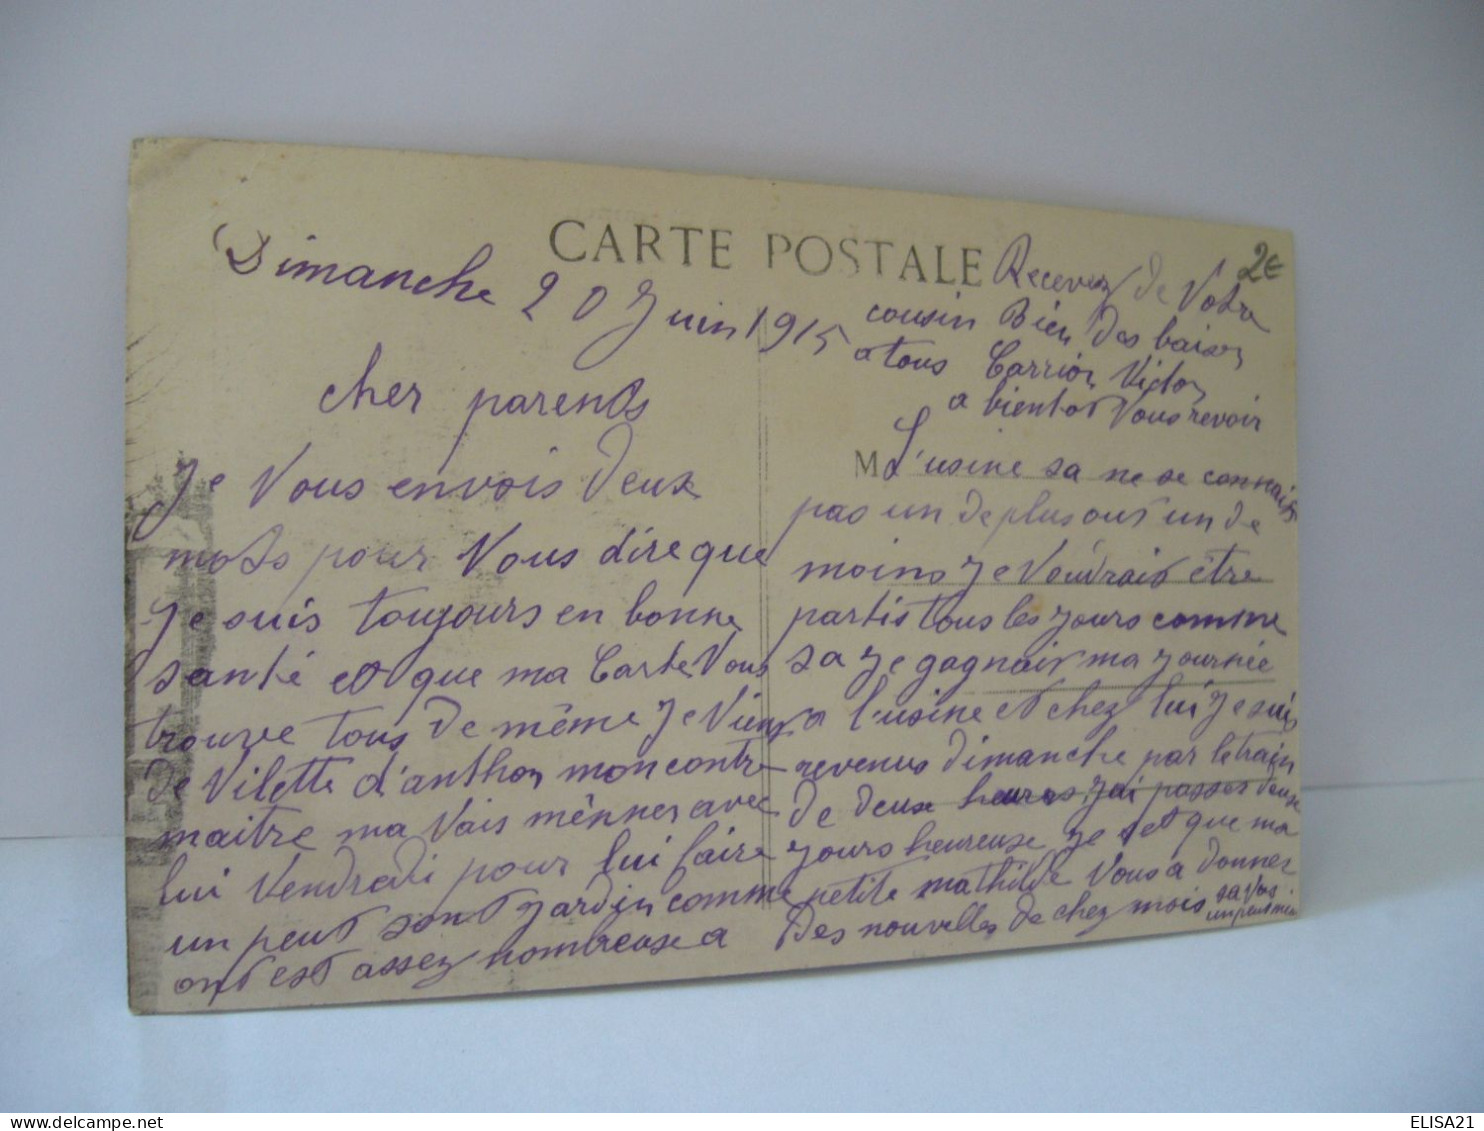 CARTE POSTALE
2€
Dimanche 20 Juin 1915
cher parents
Je Vous envois Deux
mots pour Vous dire que
Je suis toujours en bonne
santé et que ma Carte Vous
trouve tous de même Je Viens
De Vilette d'anthon mon contre
maitre ma Vais mênner avec
lui Vendredi pour lui faire
un peut sont Jardin comme
ont est assez nombreuse a
M
L'usine sa ne se connait
pas un De plus out un De
moins Je Voudrais être
partis tous les Jours comme
sa Je gagnais ma Journée
a l'usine et chez lui Je suis
revenus Dimanche par le train
De Deux heures J'ai passer Deux
Jours heureuse Je set que ma
petite mathilde Vous a Donner
Des nouvelles De chez mois sa Vas
un peut mieu
Recevez De Votre
cousin Bien Des baiser
a tous Carrion Victor
a bientot Vous revoir
ELISA21